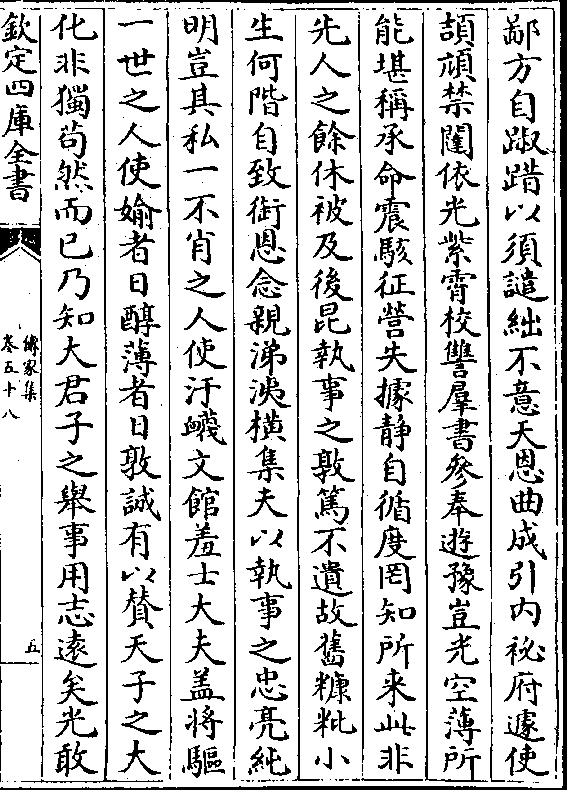 鄙方自踧踖以須譴絀不意天恩曲成引内祕府遽使
頡頏禁闥依光紫霄校讐羣書參奉遊豫豈光空薄所
能堪稱承命震駭征營失據静自循度罔知所来此非
先人之餘休被及後昆執事之敦篤不遺故舊糠粃小
生何階自致銜恩念親涕洟橫集夫以執事之忠亮純
明豈其私一不肖之人使汙衊文館羞士大夫盖将驅
一世之人使媮者日醇薄者日敦誠有以賛天子之大
化非獨苟然而已乃知大君子之舉事用志逺矣光敢
欽定四庫全書
傳家集
卷五十八
五